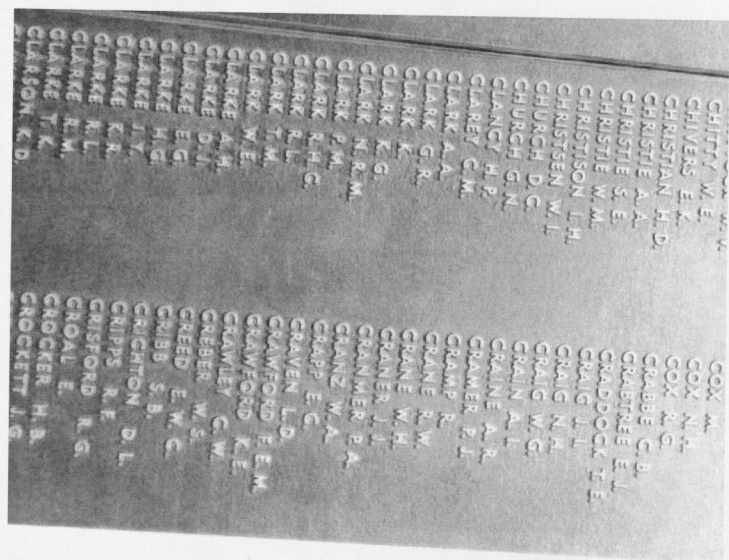 W. V.
CHITTY W. E.
CHIVERS E. K.
CHRISTIAN H. D.
CHRISTIE A. A.
CHRISTIE S. E.
CHRISTIE W. M.
CHRISTISON I. H.
CHRISTSEN W. I.
CHURCH D. C.
CHURCH G. N.
CLANCY H. P.
CLAREY C. M.
CLARK A. A.
CLARK G. R.
CLARK K.
CLARK K. G.
CLARK N. R. M.
CLARK P. M.
CLARK R. H. G.
CLARK R. L.
CLARK T. M.
CLARK W. E.
CLARKE A. H.
CLARKE D. J.
CLARKE E. G.
CLARKE H. G.
CLARKE J. Y.
CLARKE K. R.
CLARKE R. L.
CLARKE R. M.
CLARKE T. K.
CLARSON K. D.
COX M.
COX N. H.
COX R. G.
CRABBE C. B.
CRABTREE E. J.
CRADDOCK T. E.
CRAIG J. L.
CRAIG N. H.
CRAIG W. G.
CRAIN A. L.
CRAINE A. R.
CRAMER P. J.
CRAMP R.
CRANE R. W.
CRANE W. H.
CRANER J. J.
CRANMER P. A.
CRANZ W. A.
CRAPP E. G.
CRAVEN L. D.
CRAWFORD F. E. M.
CRAWFORD K. E.
CRAWLEY G. W.
CREBER W. S.
CREED E. W. C.
CRIBB S. B.
CRIGHTON D. L.
CRIPPS R. F.
CRISFORD R. G.
CROAL E.
CROCKER H. B.
CROCKETT J. G.